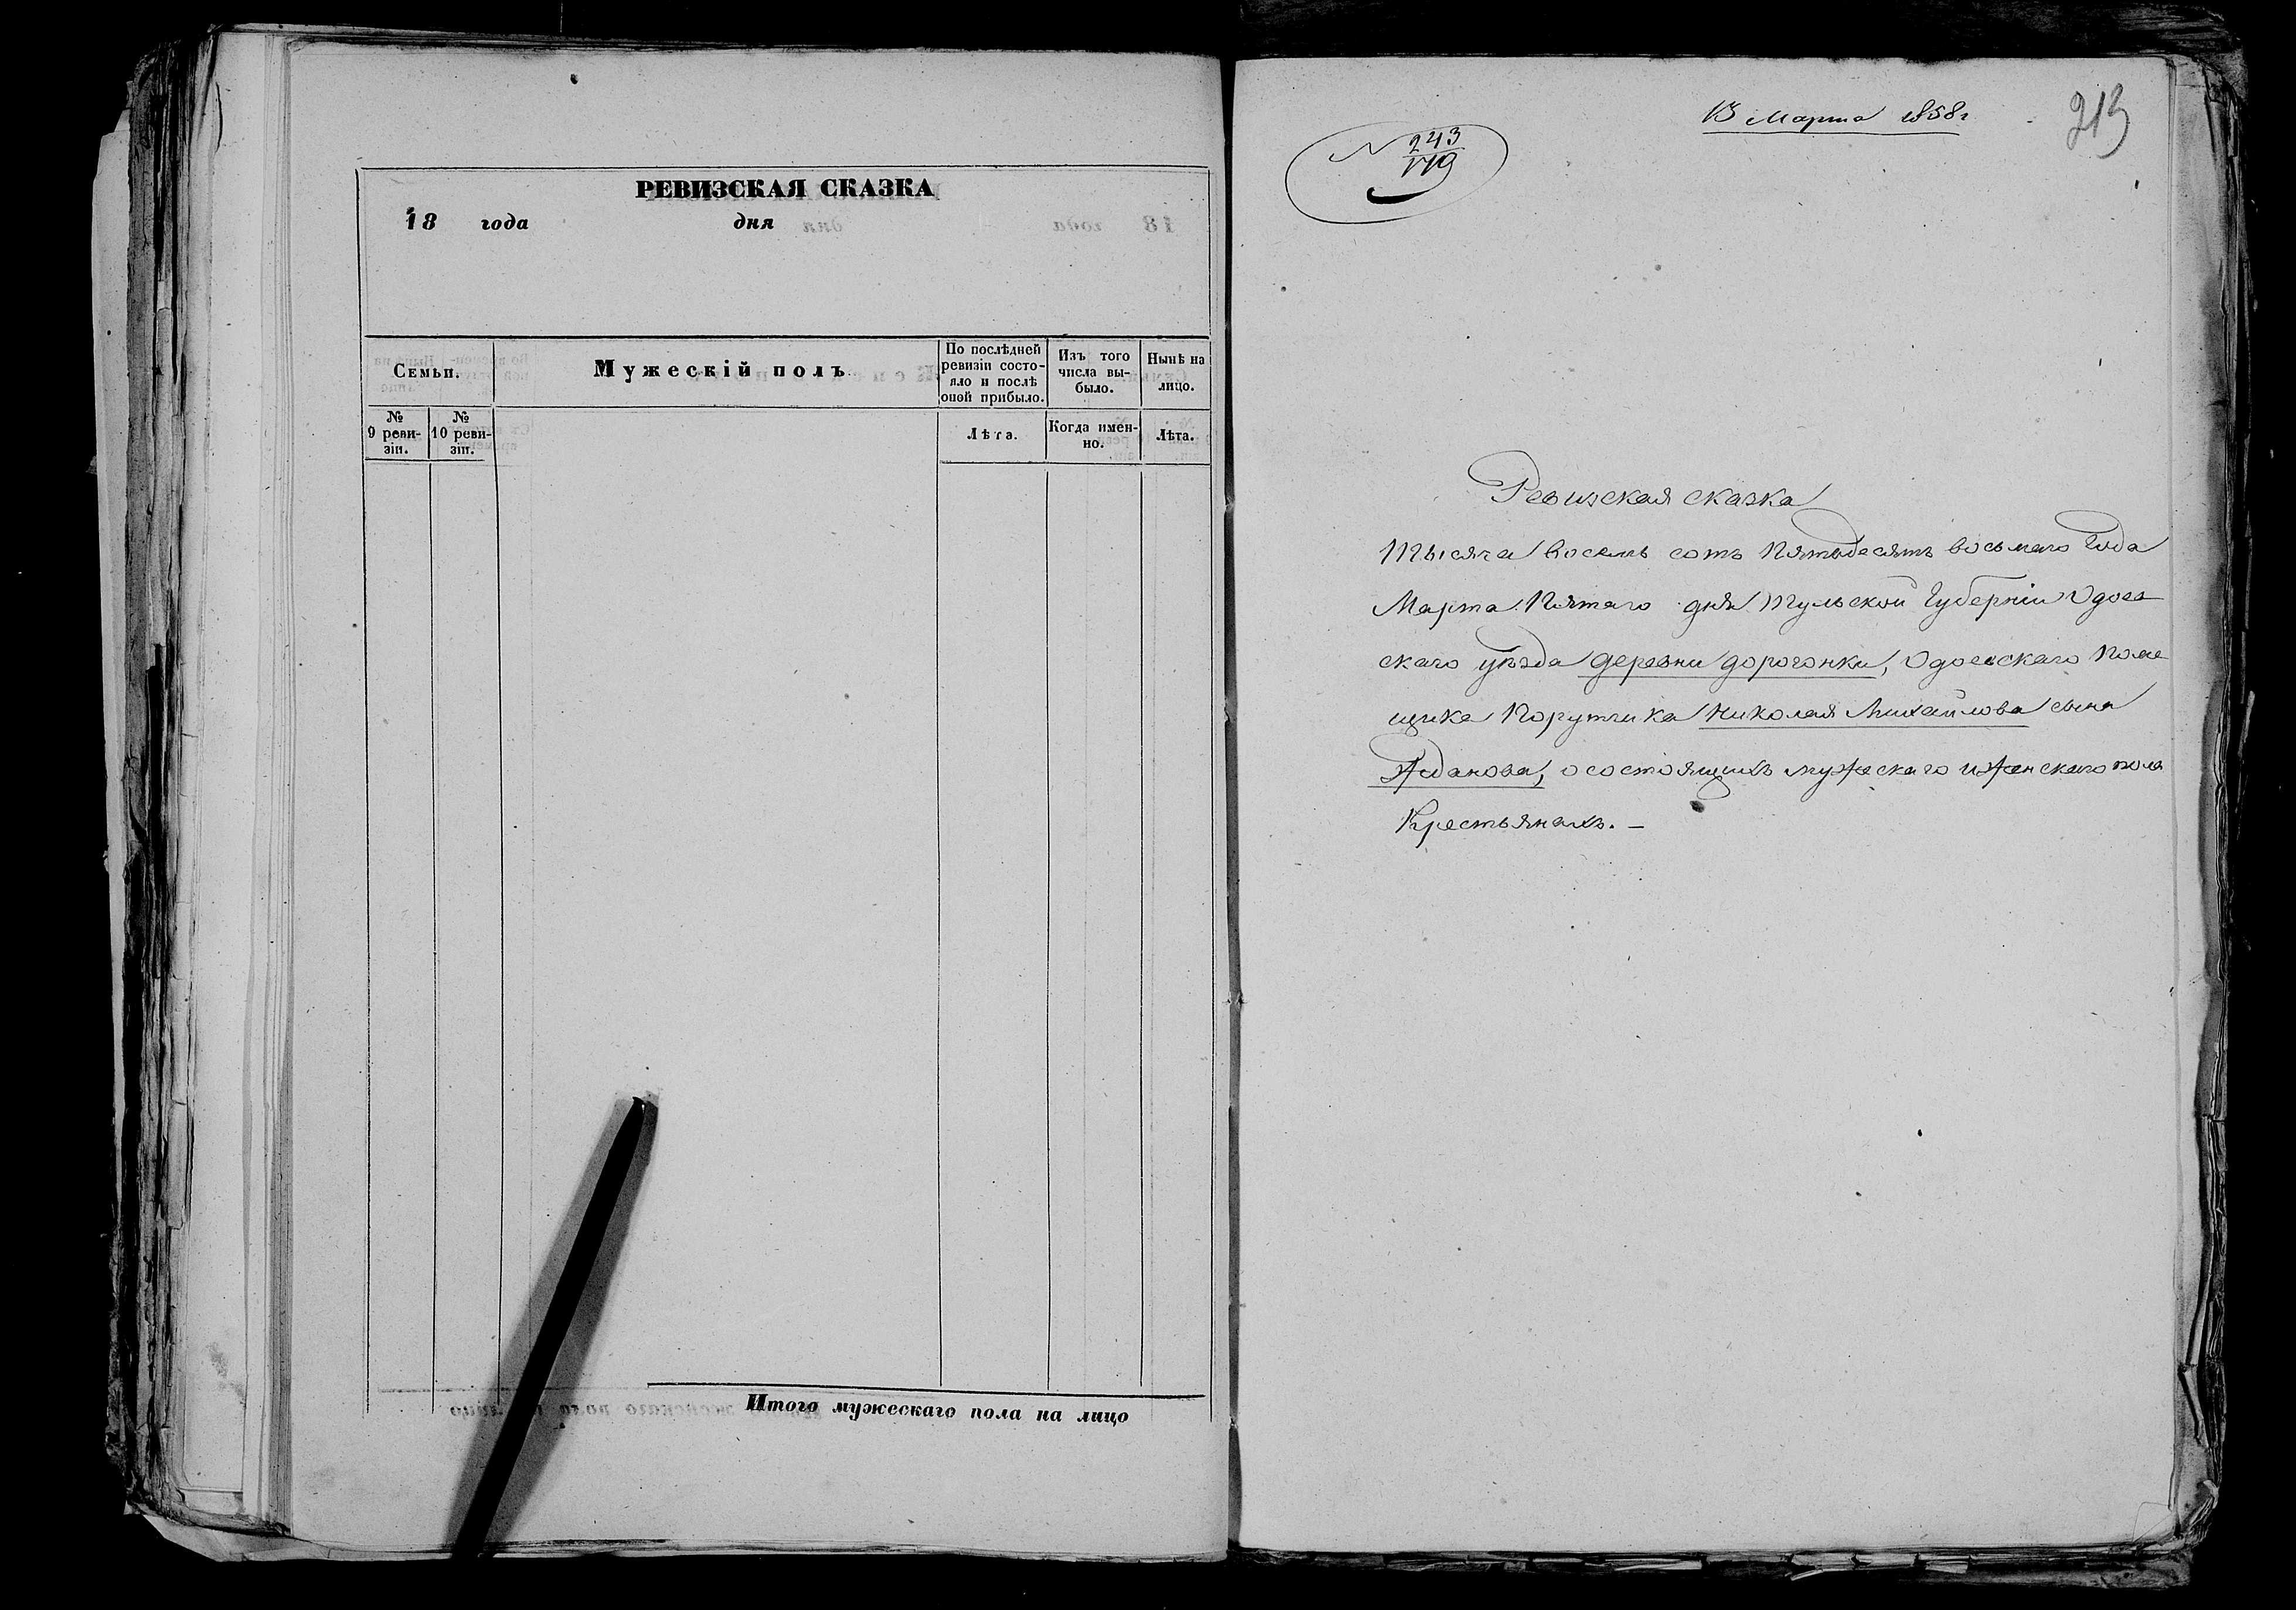 РЕВИЗСКАЯ СКАЗКА
18 года дня
Семьи.
Мужескій полъ
По послѣдней
ревизіи состо-
яло и послѣ
оной прибыло.
Изъ того
числа вы-
было.
Нынѣ на
лицо.
№
9 реви-
зіи.
№
10 реви-
зіи.
Лѣта.
Когда имен-
но.
Лѣта.
Итого мужескаго пола на лицо
13 Марта 1858 г
213
N 243
179
Ревизская сказка
Тысяча восемь сотъ Пятьдесятъ восьмаго Года
Марта Пятаго дня Тульской Губерніи Одоев
скаго уѣзда деревни дорогонки, Одоевскаго Поме
щика Порутчика Николая Михайлова сына
Жданова, о состоящихъ мужескаго и женскаго пола
Крестьянахъ. —